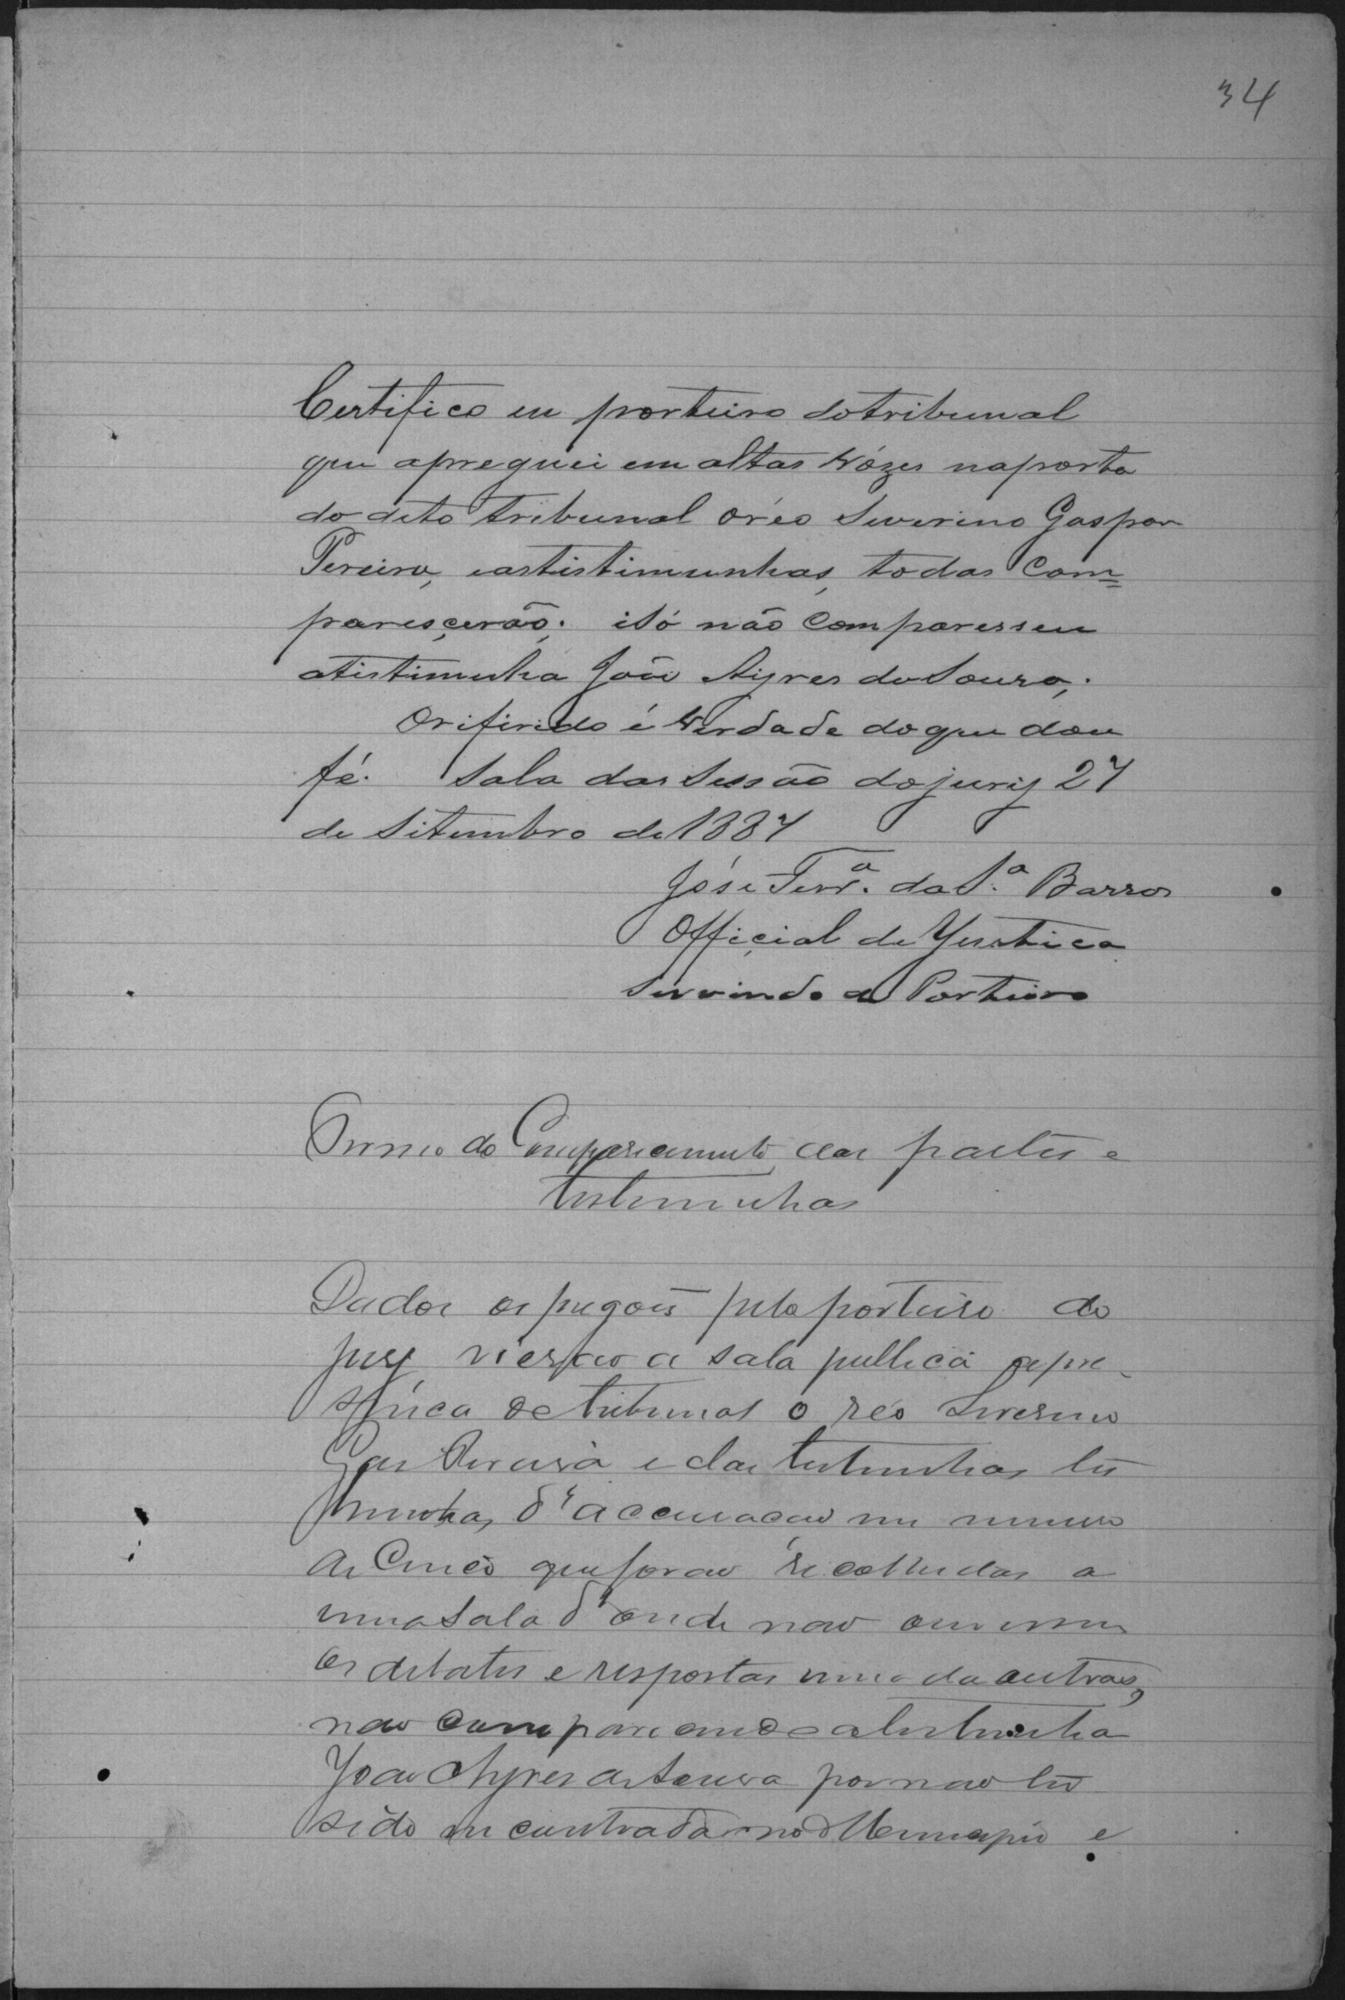 34
Certifico eu porteiro do tribunal
que apreguei em altas vózes na porta
do dito tribunal o réo Severino Gaspar
Pereira, e as tistimunhas, todas Com=
paresçerão; isó não Comparesseu
a tistimunha João Ayres de Souza;
O rifirido é Verdade do que dou
fé. Sala das Sessão do jury 27
de Sitembro de 1887
José Ferrª. da Sª. Barros
Official de Justica
Servindo de Porteiro
Termo de Comparecimento das partes e
testemunhas
Dados os pregoẽs pelo porteiro do
jury vierão a sala publica
de tribunal o réo Severino
Gar Pereira e das testemunhas
d' accusacao no numero
de Cinco que forao recolhidas a
uma sala d'onde nao ouvissem
os debates e respostas uma da outras,
nao comparecendo a testemunha
Joao Ayres de Souza por nao ter
sido encontrada no Municipio e